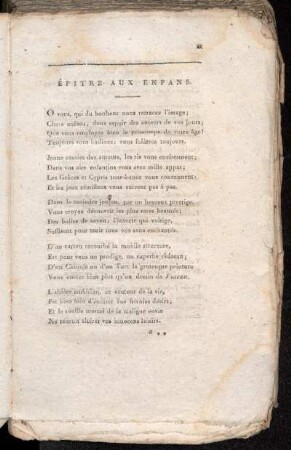 ÉPITRE AUX ENFANS.
O vous, qui du bonheur nous retracez l'image;
Chers enfans, doux espoir des auteurs de vos jours,
Que vous employez bien le printemps de votre âge!
Toujours vous badinez; vous folâtrez toujours.
Jeune essaim des amours, les ris vous environnent;
Dans vos jeux enfantins vous avez mille appas;
Les Grâces et Cypris tour-à-tour vous couronnent;
Et les jeux séduisans vous suivent pas à pas.
Dans le moindre joujou, par un heureux prestige,
Vous croyez découvrir les plus rares beautés;
Des bulles de savon, l'insecte qui voltige,
Suffisent pour tenir tous vos sens enchantés.
D'un carton
la mobile
Est pour vous un prodige, un superbe
D'un Chinois ou d'un Turc la grotesque peinture
Vous
plus qu'un dessin de
de la vie,
Et le souffle mortel de la maligne envie
Ne vient altérer vos innocens loisirs.